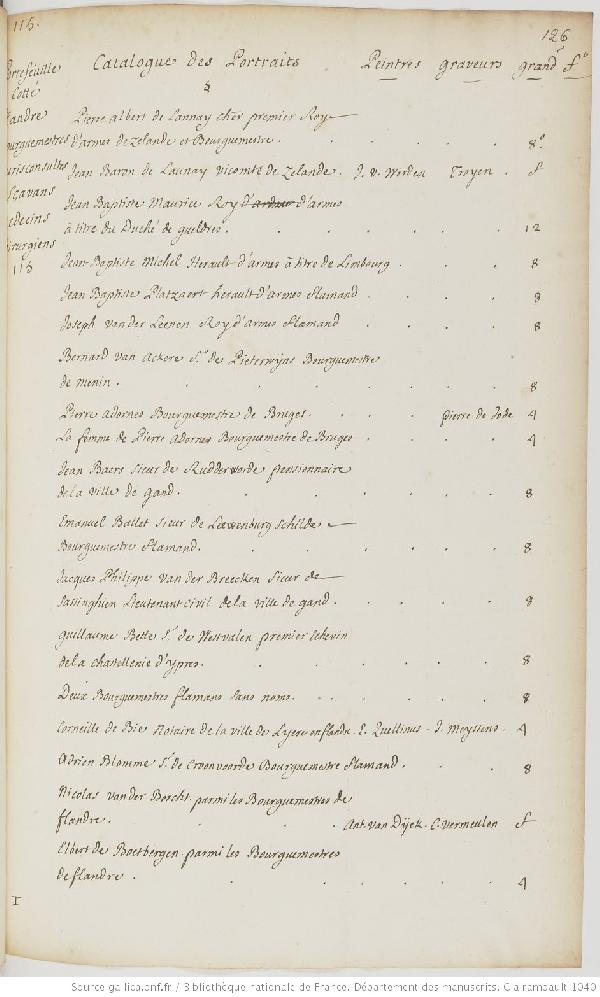 115.
126
Portefeuille
Cotté
flandre
Bourguemestres
Jurisconsultes
Sçavans
Medecins
Chirurgiens
115
Catalogue des Portraits Peintres graveurs grandr. fo.
Pierre albert de Launay cher premier Roy
d'armes de zelande et Bourguemestre. 8o.
Jean Baron de Launay vicomte de zelande. J. v. Werden Troyen. fo
Jean Baptiste Maurice Roy d'armes
à titre du Duché de gueldres. 12
Jean Baptiste Michel Herault d'armes à titre de Limbourg. 8
Jean Baptiste Platzaert herault d'armes flamand. 8
Joseph van der Leenen Roy d'armes flamand 8
Bernard van Ackere Sr. de Pieterwyns Bourguemestre
de menin. 8
Pierre adornes Bourguemestre de Bruges. pierre de Jode 4
La femme de Pierre adornes Bourguemestre de Bruges. 4
Jean Baers sieur de Rudderworde pensionnaire
de la ville de gand. 8
Emanuel Ballet sieur de Leewenburg schilde
Bourguemestre flamand. 8
Jacques Philippe van der Breecken Sieur de
Sassinghien Lieutenant civil de la ville de gand. 8
guillaume Bette Sr. de Westvalen premier Echevin
de la chastellenie d'ypres. 8
Deux Bourguemestres flamans sans noms. 8
Corneille de Bie Notaire de la ville de Lyere en flandr. E. Quellinus. J. Meyssens. 4
Adrien Blomme Sr. de Croonvoorde Bourguemestre flamand. 8
Nicolas van der Borcht parmi les Bourguemestres de
flandre. Ant. van Dÿck. C. vermeulen fo
Elbert de Boetbergen parmi les Bourguemestres
de flandre. 4
I
Source gallica.bnf.fr / Bibliothèque nationale de France. Département des manuscrits. Clairambault 1040